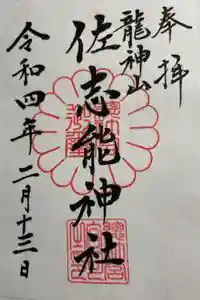 奉拝
龍神山
佐志能神社
令和四年二月十三日